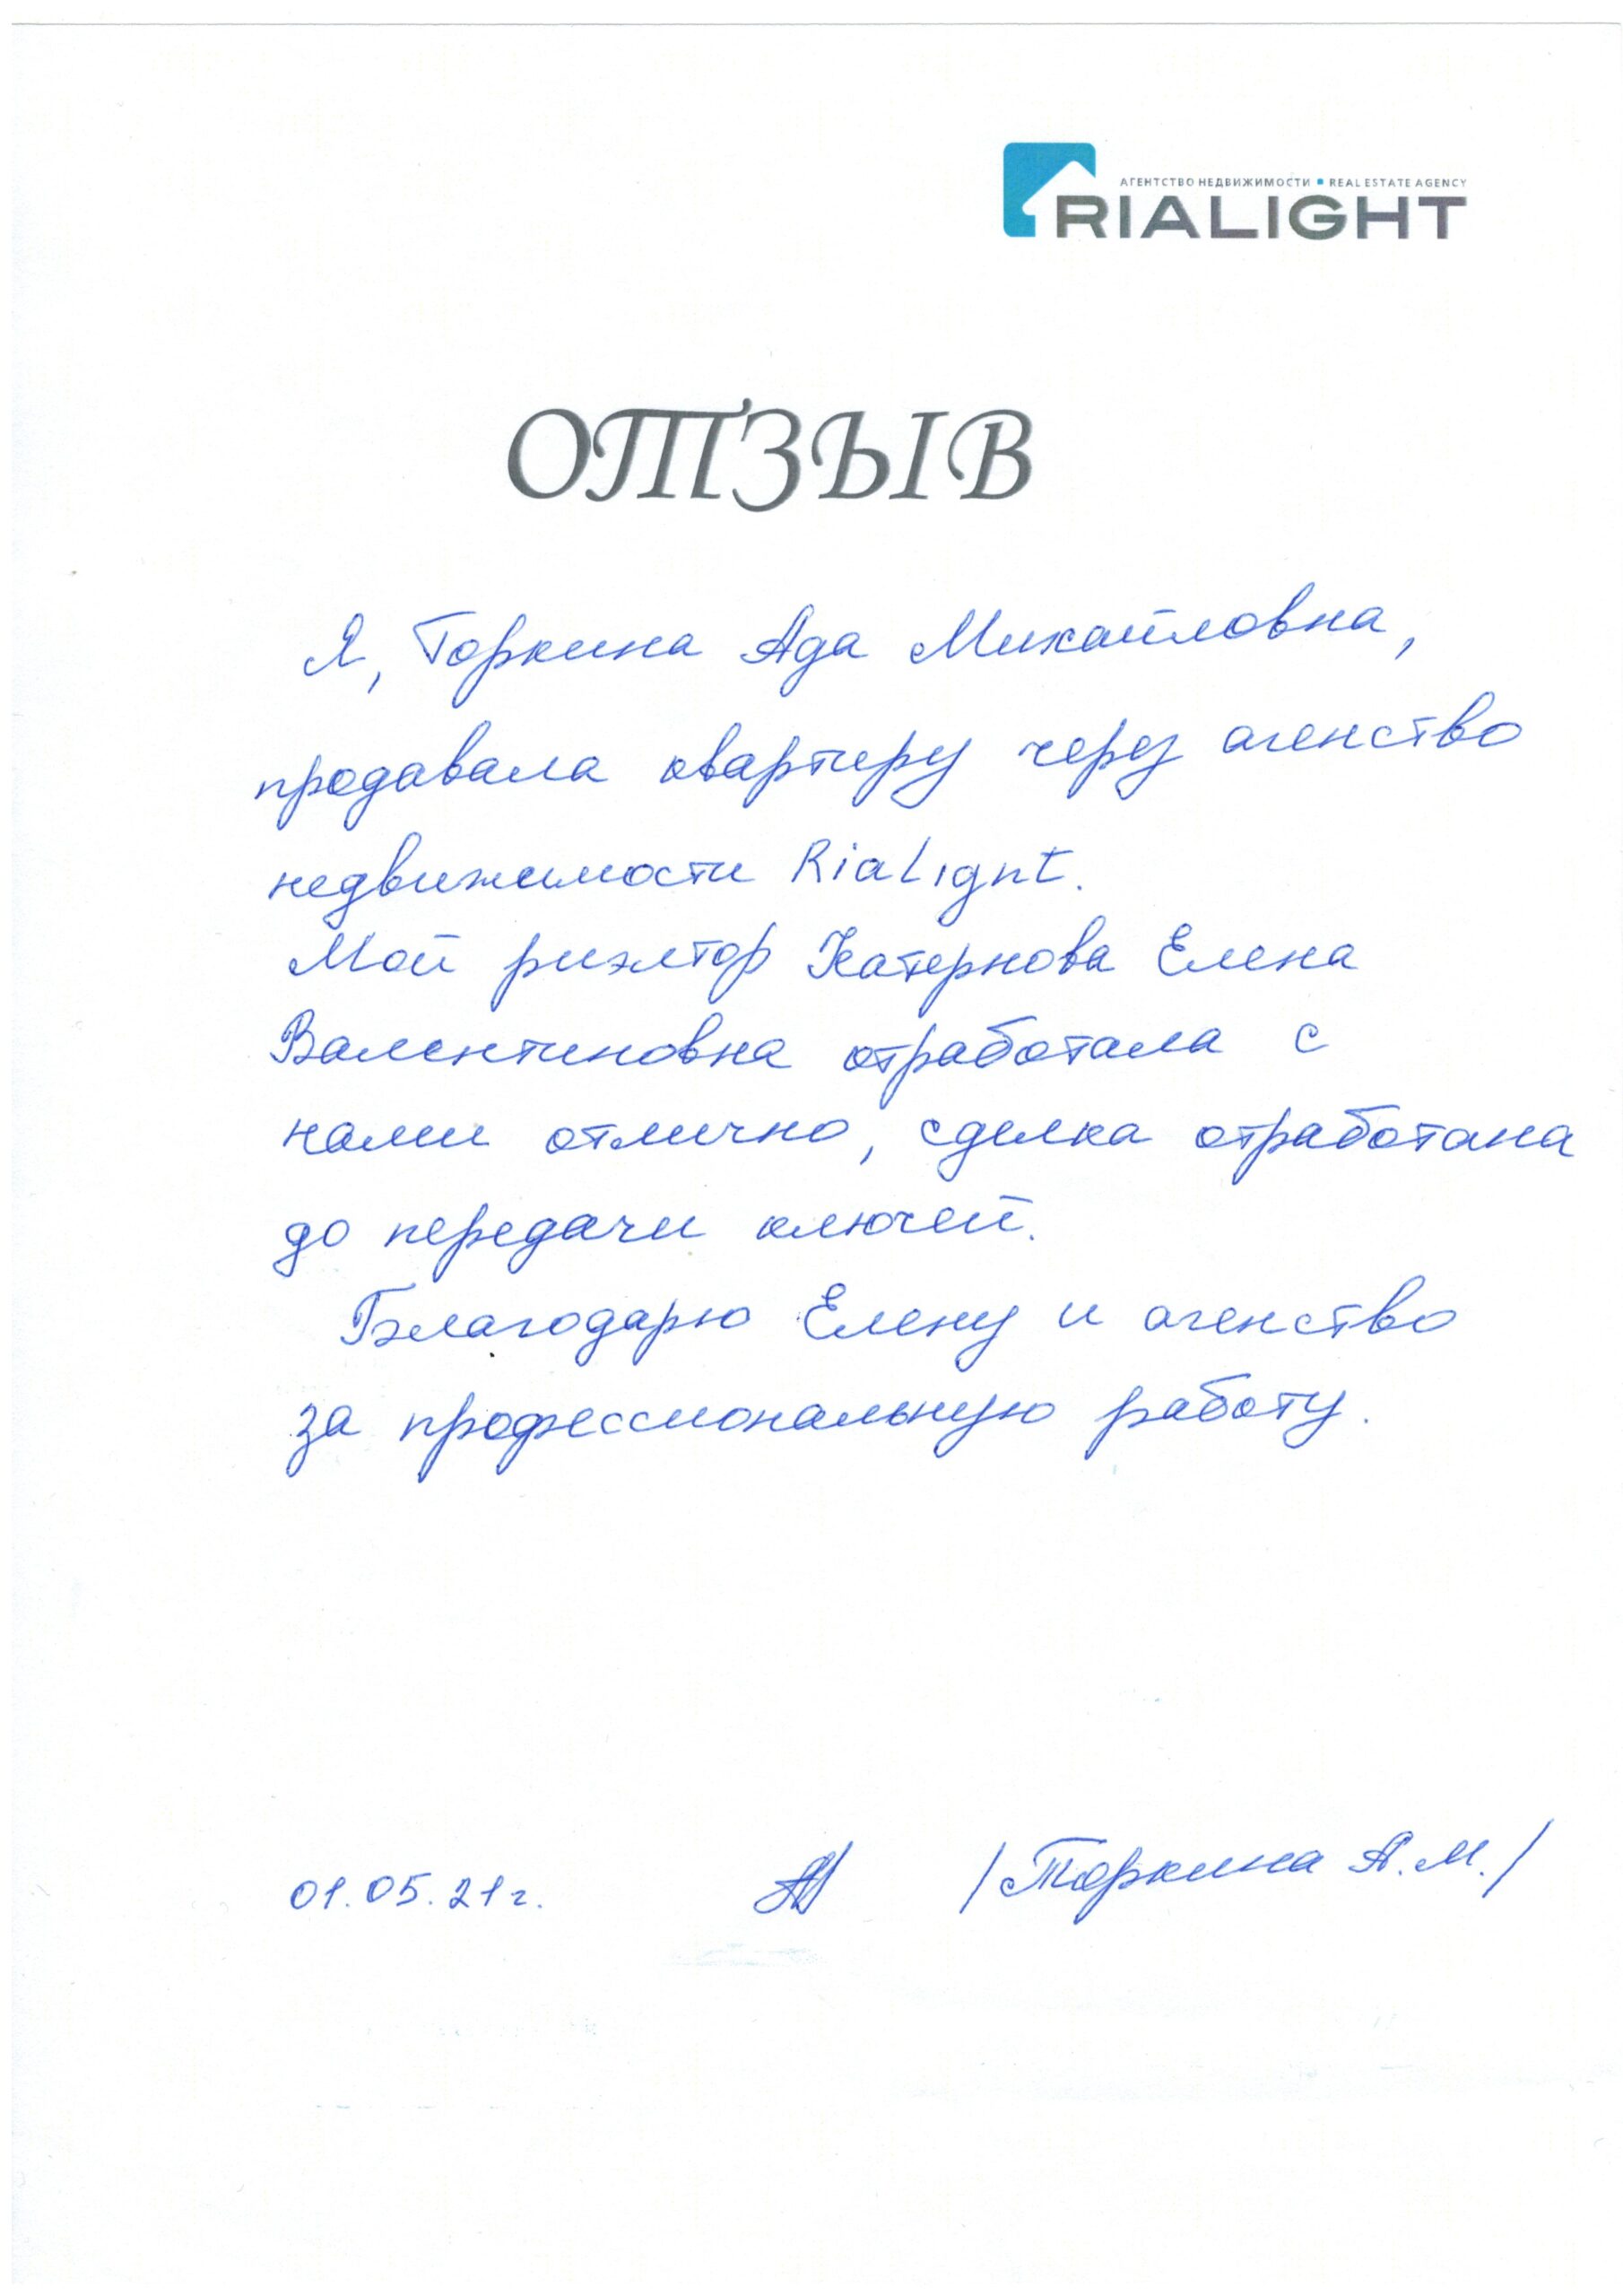 АГЕНТСТВО НЕДВИЖИМОСТИ ▪ REAL ESTATE AGENCY
RIALIGHT
ОТЗЫВ
Я, Торкина Ада Михайловна,
продавала квартиру через агенство
недвижимости RiaLight.
Мой риэлтор Катернова Елена
Валентиновна отработала с
нами отлично, сделка отработана
до передачи ключей.
Благодарю Елену и агенство
за профессиональную работу.
01.05.21г. /Торкина А.М./